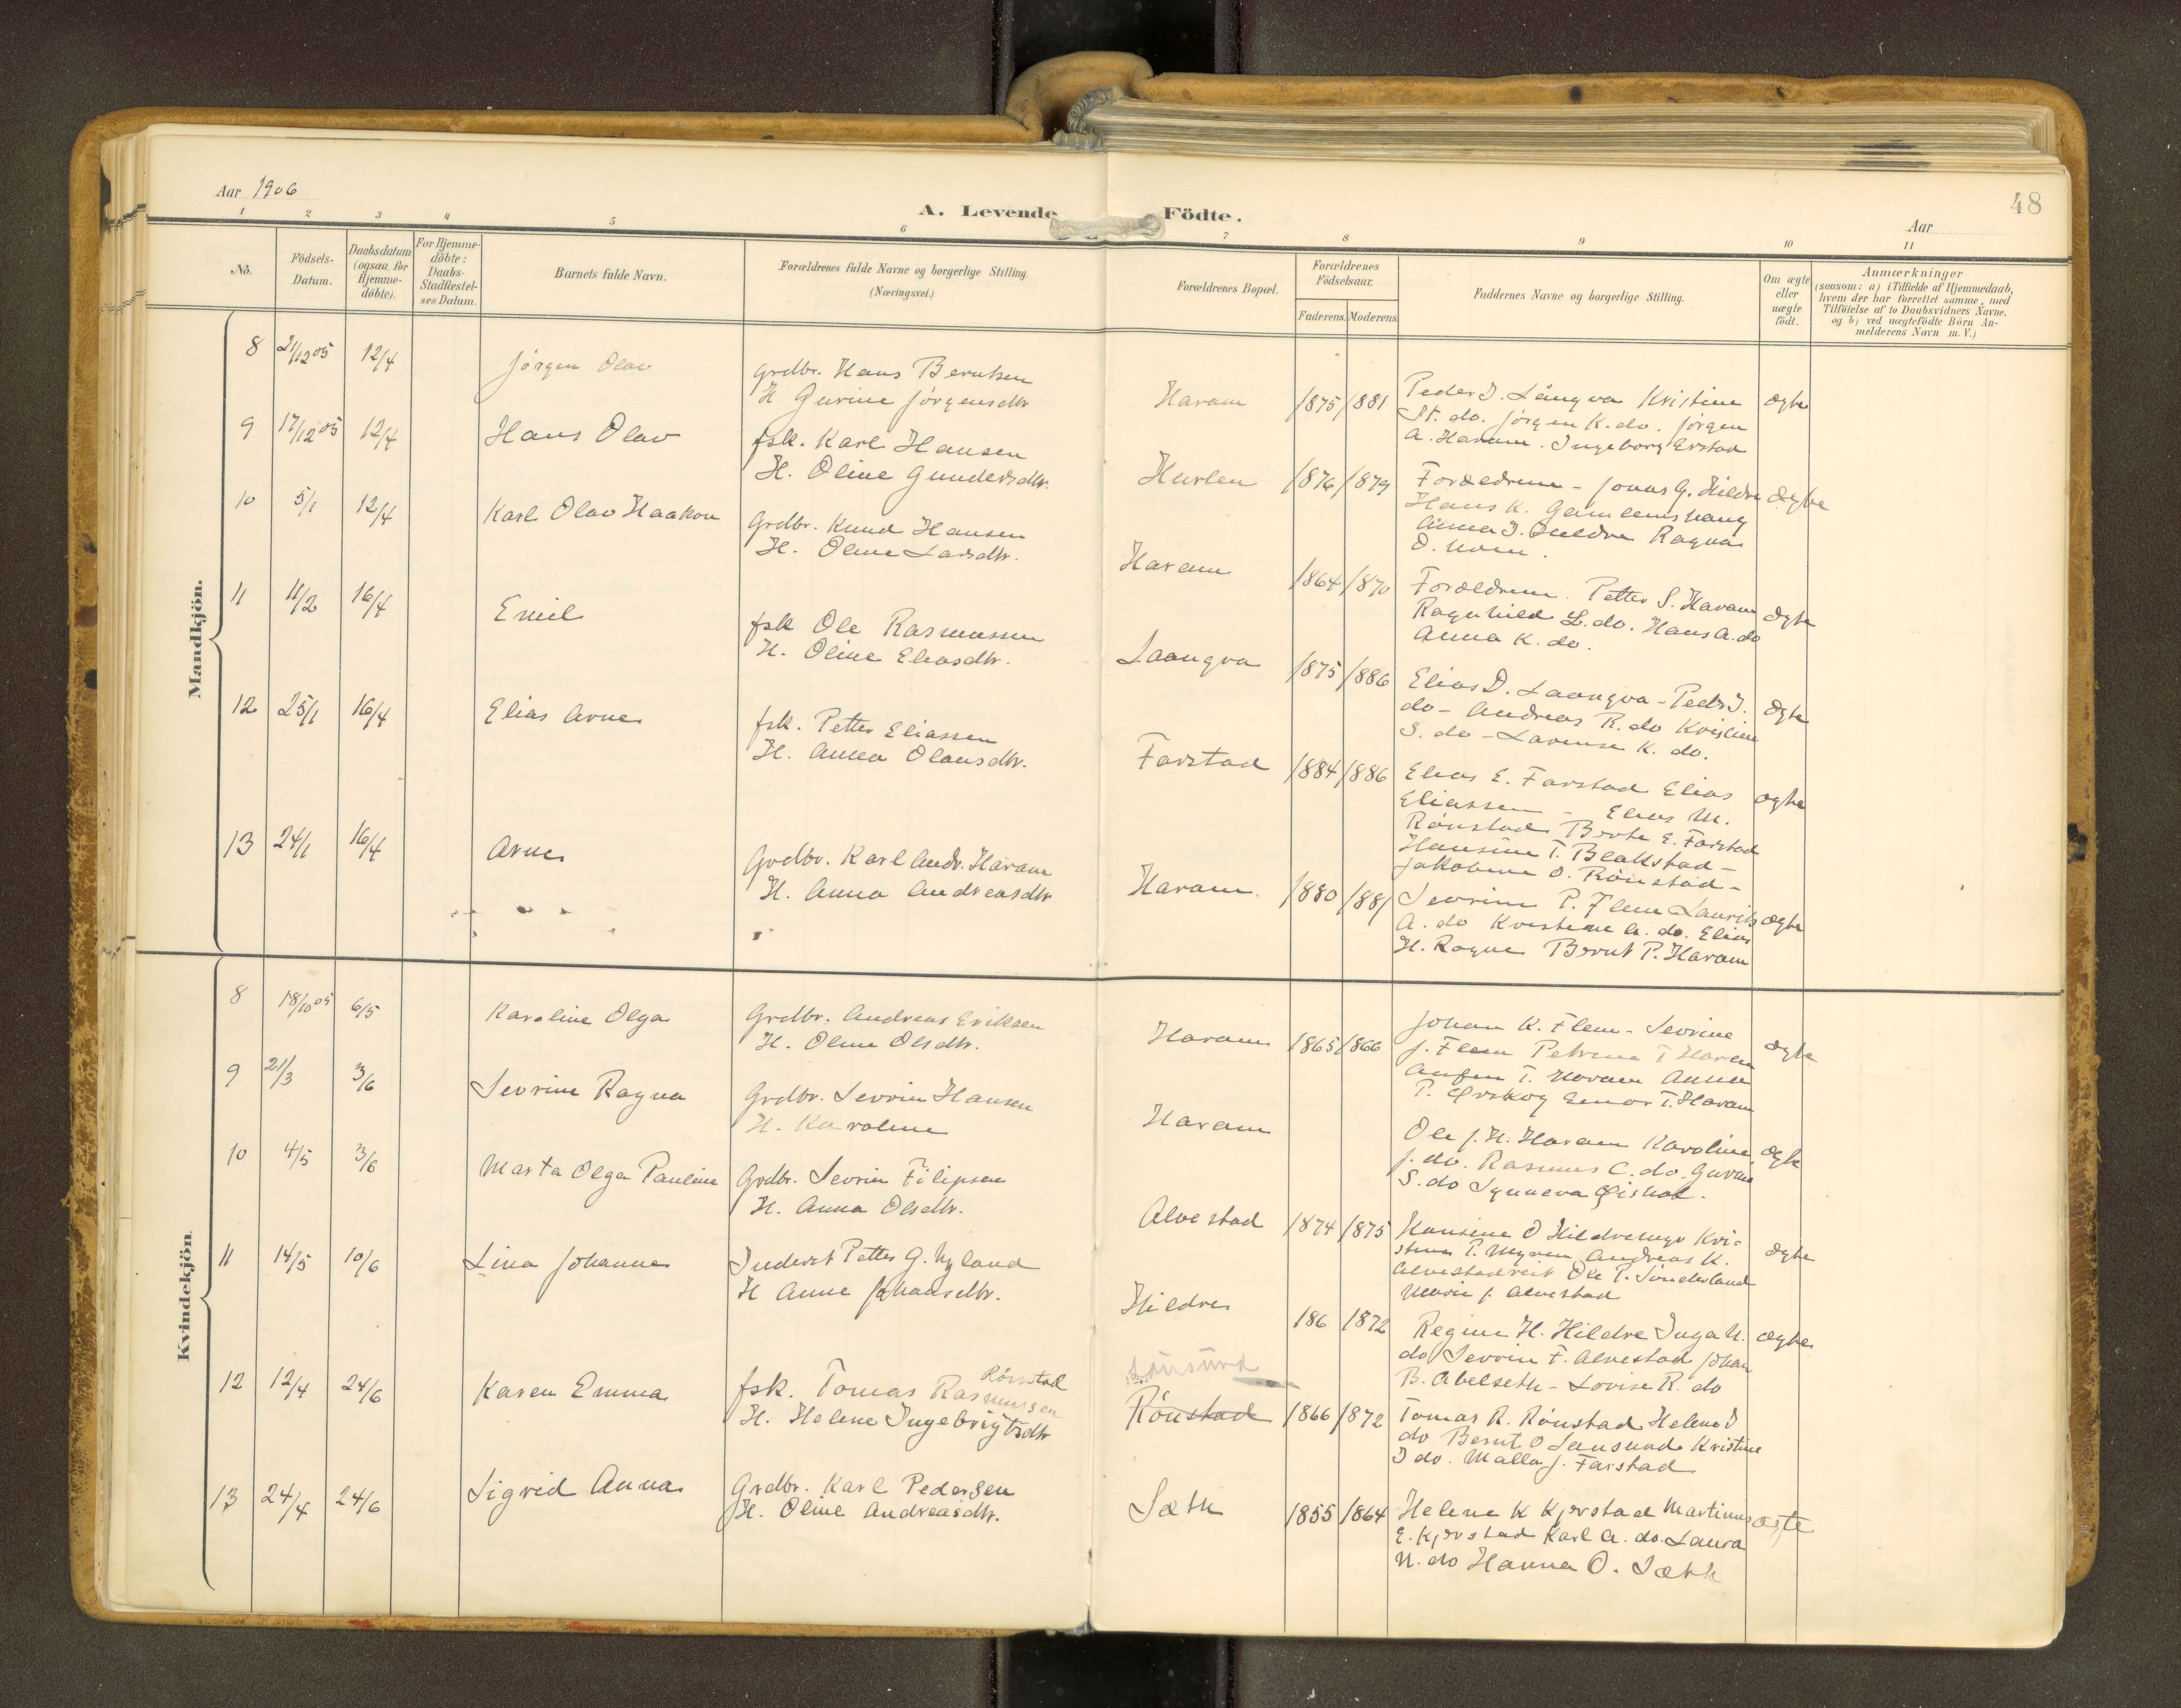 Aar 1906
48
A. Levende Födte.
Aar
1 2 3 4 5 6 7 8 9 10 11
No.
Födsels-
Datum.
Daabsdatum
(ogsaa for
Hjemme-
döbte).
For Hjemme-
döbte:
Daabs-
Stadfæstel-
ses Datum.
Barnets fulde Navn.
Forældrenes fulde Navne og borgerlige Stilling.
(Næringsvei.)
Forældrenes Bopæl.
Forældrenes
Födselsaar.
Faderens. Moderens.
Faddernes Navne og borgerlige Stilling.
Om ægte
eller
uægte
födt.
Anmærkninger
(saasom: a) i Tilfælde af Hjemmedaab,
hvem der har forrettet samme, med
Tilföielse af to Daabsvidners Navne,
og b) ved uægtefödte Börn An-
melderens Navn m. V.)
Mandkjön.
8 21/12 05 12/4 Jörgen Olav
Grdbr. Hans Berntsen
H Gurine Jörgensdtr
Haram 1875 1881
Peder J. Långva Kristine
St. do. Jörgen K. do. Jörgen
A. Haram. Ingeborg Erstad
ægte
9 17/12 05 12/4 Hans Olav
fsk. Karl Hansen
H. Oline Gundersdtr.
Hurlen 1876 1879
Forældrene - Jonas G. Hildre
Hans K. Gamlemshaug
Anna J. Hildre Ragna
O.
ægte
10 5/1 12/4 Karl Olav Haakon
Grdbr. Knud Hansen
H. Oline Larsdtr.
Haram 1864 1870
Forældrene. Petter S. Haram
Ragnhild L. do. Hans A. do
Anna K. do.
ægte
11 11/2 16/4 Emil
fsk Ole Rasmussen
H. Oline Eliasdtr.
Laangva 1875 1886
Elias D. Laangva - Peder J.
do - Andreas R. do Kristine
S. do - Lavense K. do.
ægte
12 25/1 16/4 Elias Arne
fsk. Petter Eliassen
H. Anna Olausdtr.
Farstad 1884 1886
Elias E. Farstad Elias
Eliassen - Elias M.
Rönstad Berte E. Farstad
Hansine T. Blakstad -
Jakobine O. Rönstad -
ægte
13 24/1 16/4 Arne
Grdbr. Karl Andr. Haram
H. Anna Andreasdtr
Haram. 1880 1881
Sevrine P. Flem Laurits
A. do Kristine A. do. Elias
H. Rogne Bernt P. Haram
ægte
Kvindekjön.
8 18/10 05 6/5 Karoline Olga
Grdbr. Andreas Eriksen
H. Oline Olsdtr.
Haram 1865 1866
Johan K. Flem - Sevrine
J. Flem Petrine T Haram
T. Haram Anne
P. Ørskog Einar T. Haram
ægte
9 21/3 3/6 Sevrine Ragna
Grdbr. Sevrin Hansen
H. Karoline
Haram
Ole J. H. Haram Karoline
J. do. Rasmus C. do. Gurine
S. do Synneva
ægte
10 4/5 3/6 Marta Olga Pauline
Grdbr. Sevrin Filipsen
H. Anna Olsdtr.
Alvestad 1874 1875
Hansine O Hildremyr Kri-
stine P. Myren Andreas K.
Alvestadreit Ole P. Sönderland
Marie J. Alvestad
ægte
11 14/5 10/6 Lina Johanne
Inderst Petter G. Nyland
H Anne Johansdtr.
Hildre 186 1872
Regine H. Hildre Inga N.
do Sevrin F. Alvestad Johan
B. Abelseth - Lovise R. do
ægte
12 12/4 24/6 Karen Emma
fsk. Tomas Rasmussen Rönstad
H. Helene Ingebrigtsdtr
Lönsund
Rönstad 1866 1872
Tomas R. Rönstad Helene I
do Bernt O Lausund Kristine
I do. Malla J. Farstad
13 24/4 24/6 Sigrid Anna
Grdbr. Karl Pedersen
H. Oline Andreasdtr.
Sæth 1855 1864
Helene K Kjerstad Martinus
E. Kjerstad Karl A. do. Laura
N. do Hanna O. Sæth
ægte